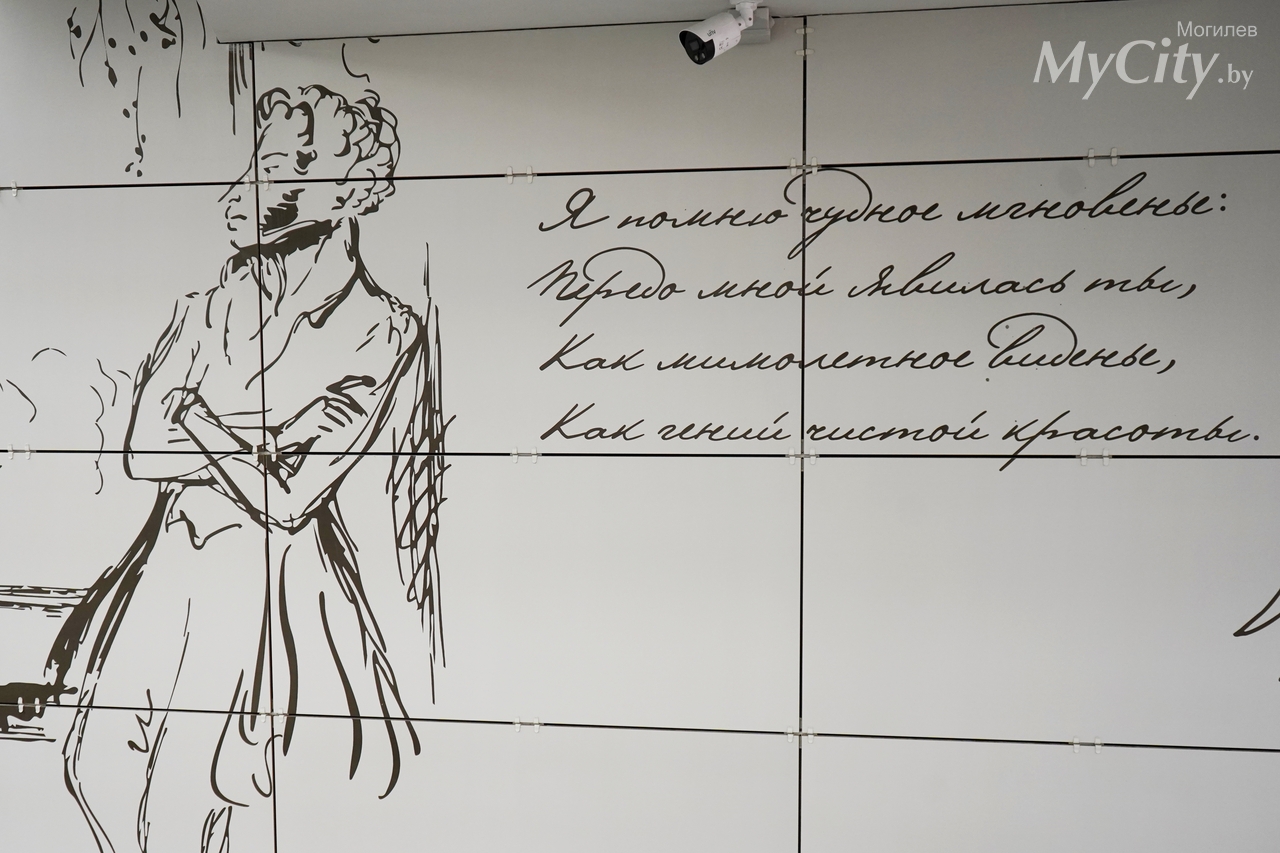 Могилев
MyCity.by
Я помню чудное мгновенье:
Передо мной явилась ты,
Как мимолетное виденье,
Как гений чистой красоты.